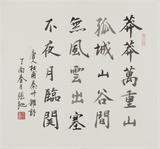 莽莽萬重山
孤城山谷間
無風雲出塞
不夜月臨關
唐人杜甫秦州雜詩
丁酉春月張馳